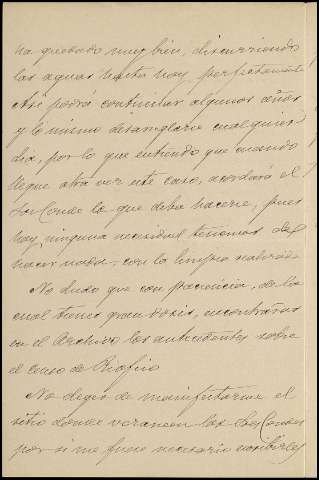 ha quedado muy bien, discurriendo
las aguas hasta hoy perfectamente
Así podrá continuar algunos años
y lo mismo desarreglarse cualquier
dia, por lo que entiendo que cuando
llegue otra vez este caso, acordará el
Sor Conde lo que deba hacerse, pues
hoy ninguna necesidad tenemos de
hacer nada, con la limpia
No dudo que con paciencia, de la
cual tiene gran dosis, encontrará
en el Archivo los antecedentes, sobre
el censo de Riofrio
No deje de manifestarme el
sitio donde veranean los Sres Condes
por si me fuese necesario escribirles